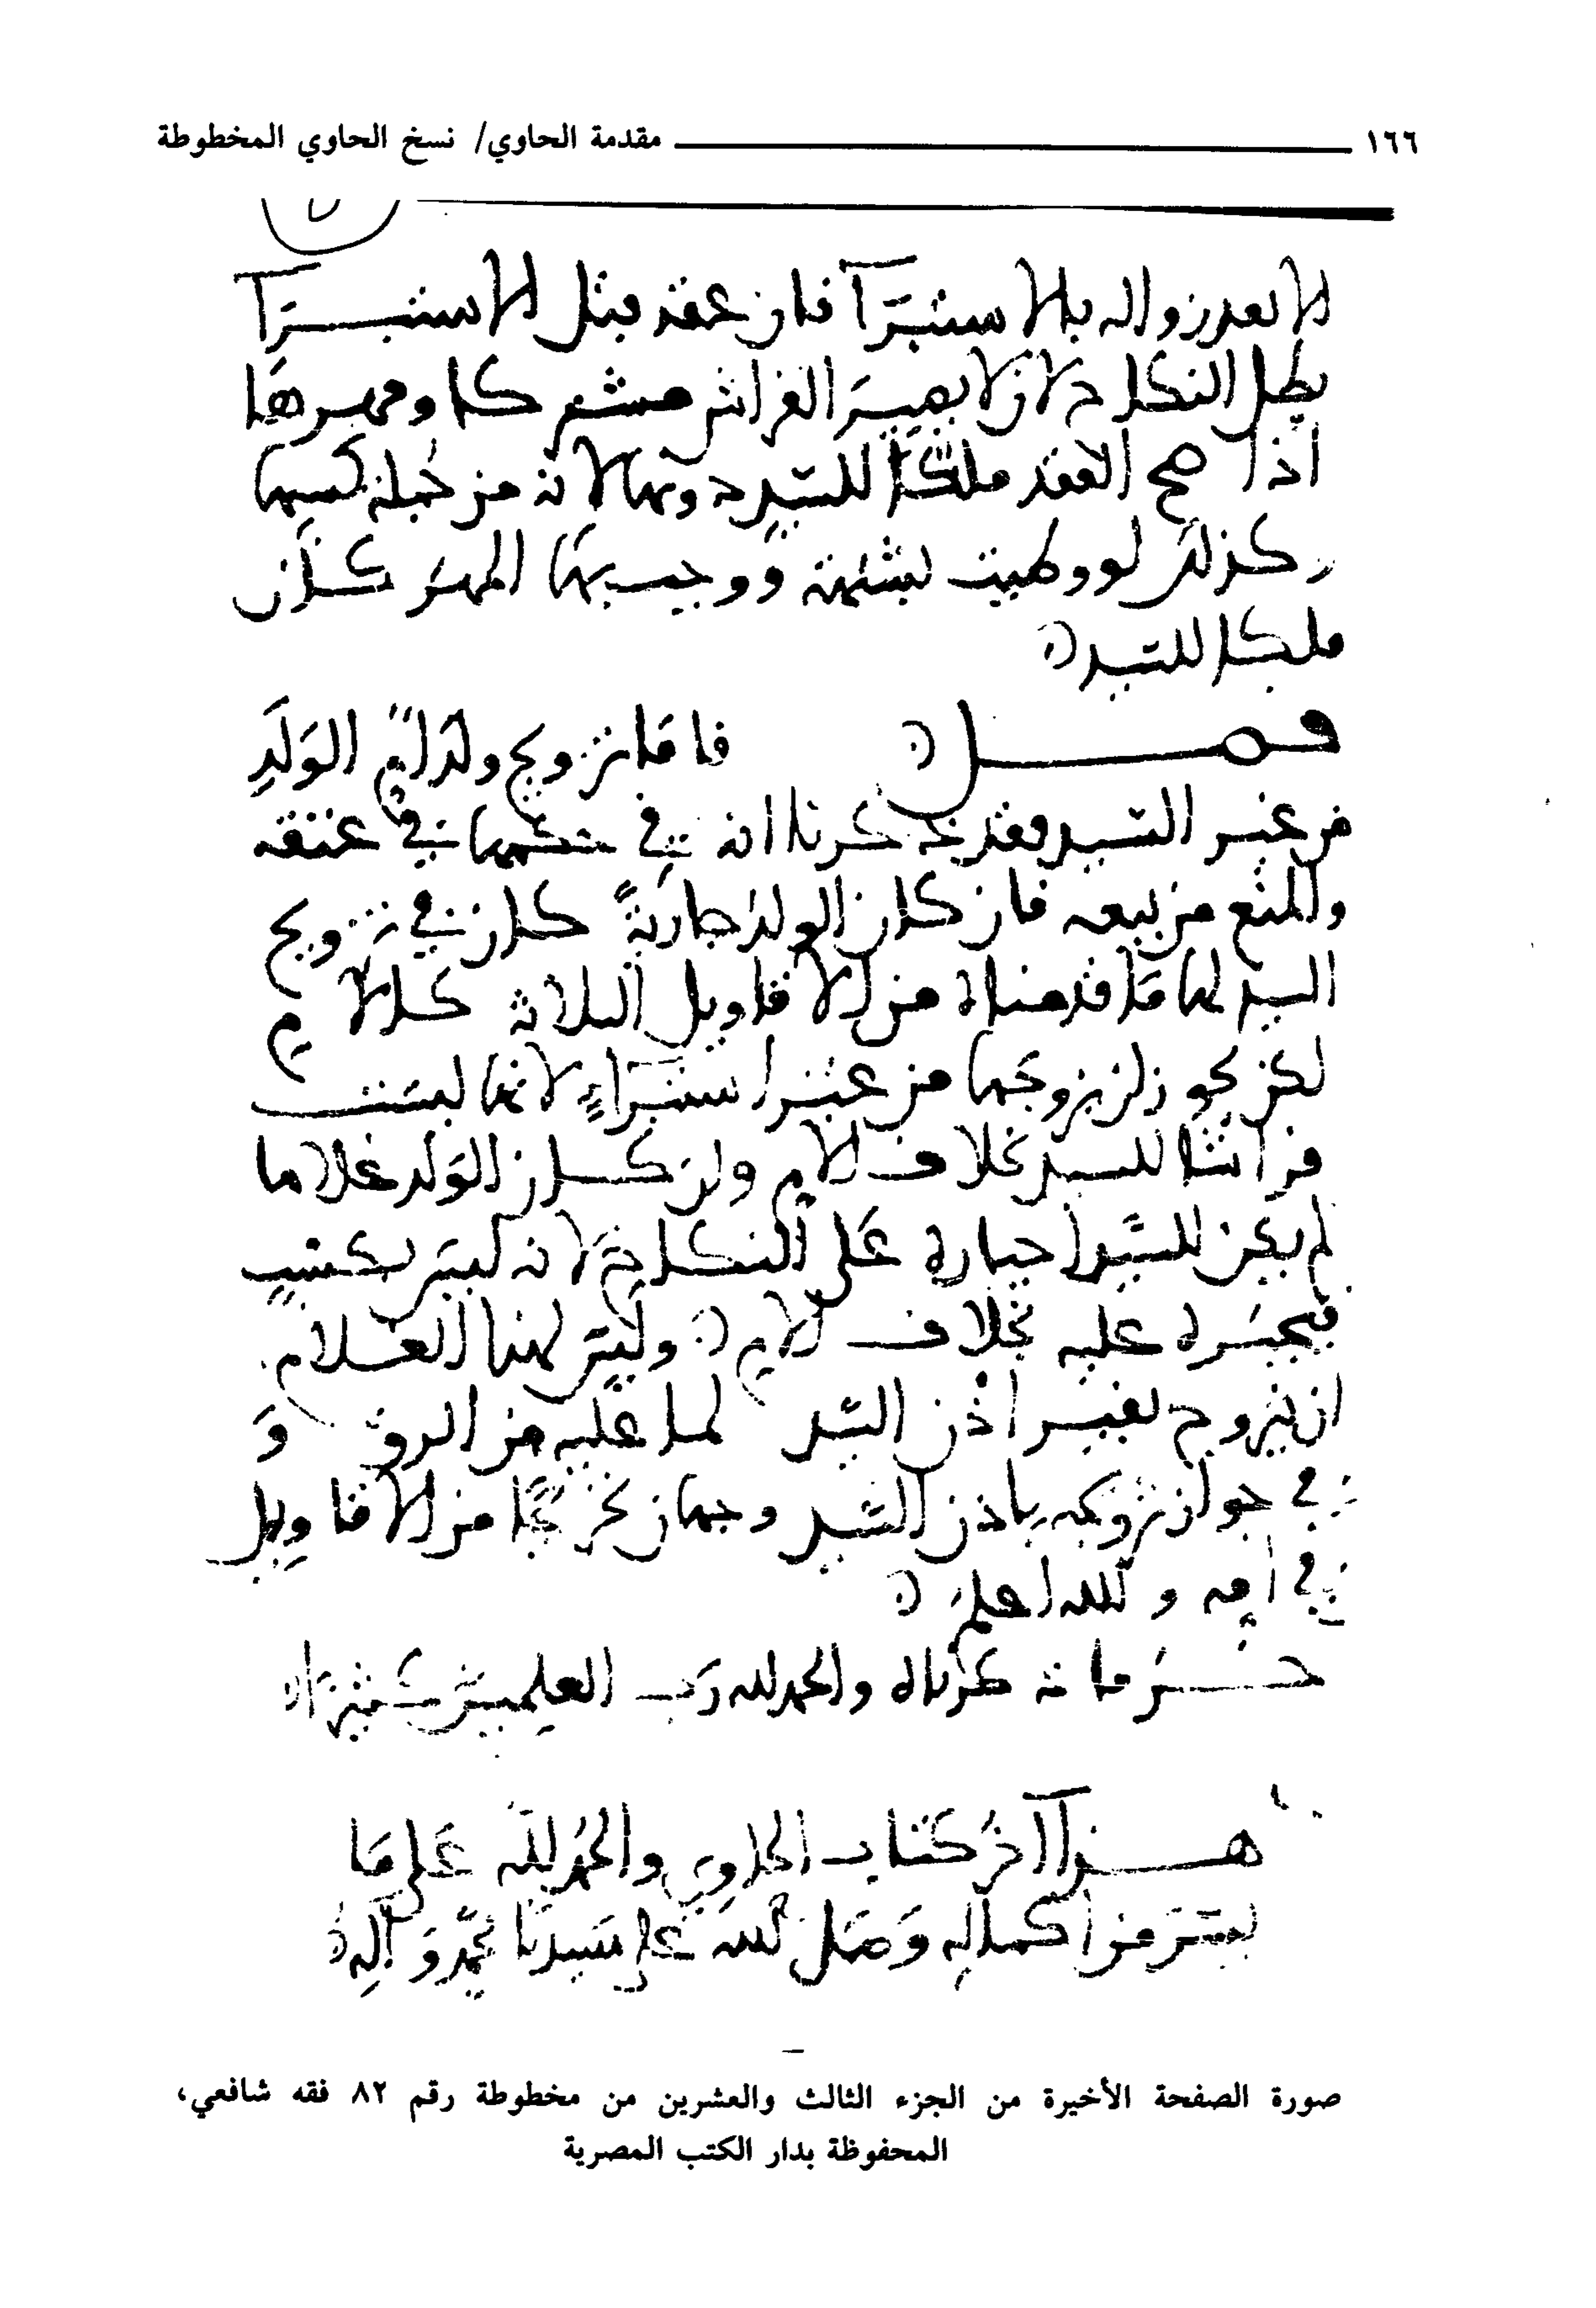 ١٦٦ مقدمة الحاوي/ نسخ الحاوي المخطوطة
الا بعد زواله بالاستبرآ فان عقد قبل الاستبرآ
بطل النكاح لان لا يصير الفراش مشتركا ومهرها
اذا صح العقد ملكا للسيد دونها لانه من جملة كسبها
وكذلك لو وطيت بشبهة ووجب بها المهر كان
ملكا للسيد
فصل فاما تزويج ولد ام الولد
من غير السيد فقد ذكرنا انه في حكمها في عتقه
والمنع من بيعه فان كان الولد جارية كان في تزويج
السيد لها ما قدمناه من الاقاويل الثلاثة كالام
لكن يجوز ان يزوجها من غير استبراء لانها ليست
فراشا للسيد بخلاف الام وان كان الولد غلاما
لم يكن للسيد اجباره على النكاح لانه ليس بكسب
فيجبره عليه بخلاف الام وليس لهذا الغلام
ان يتزوج بغير اذن السيد لما عليه من الرق و
في جواز تزويجه باذن السيد وجهان تخريجا من الاقاويل
في امه والله اعلم
حسر ما ذكرناه والحمد لله رب العلمين كثيرا
هذا آخر كتاب الحاوي والحمد لله على ما
يسر من اكماله وصلى الله على سيدنا محمد وآله
صورة الصفحة الأخيرة من الجزء الثالث والعشرين من مخطوطة رقم ٨٢ فقه شافعي،
المحفوظة بدار الكتب المصرية